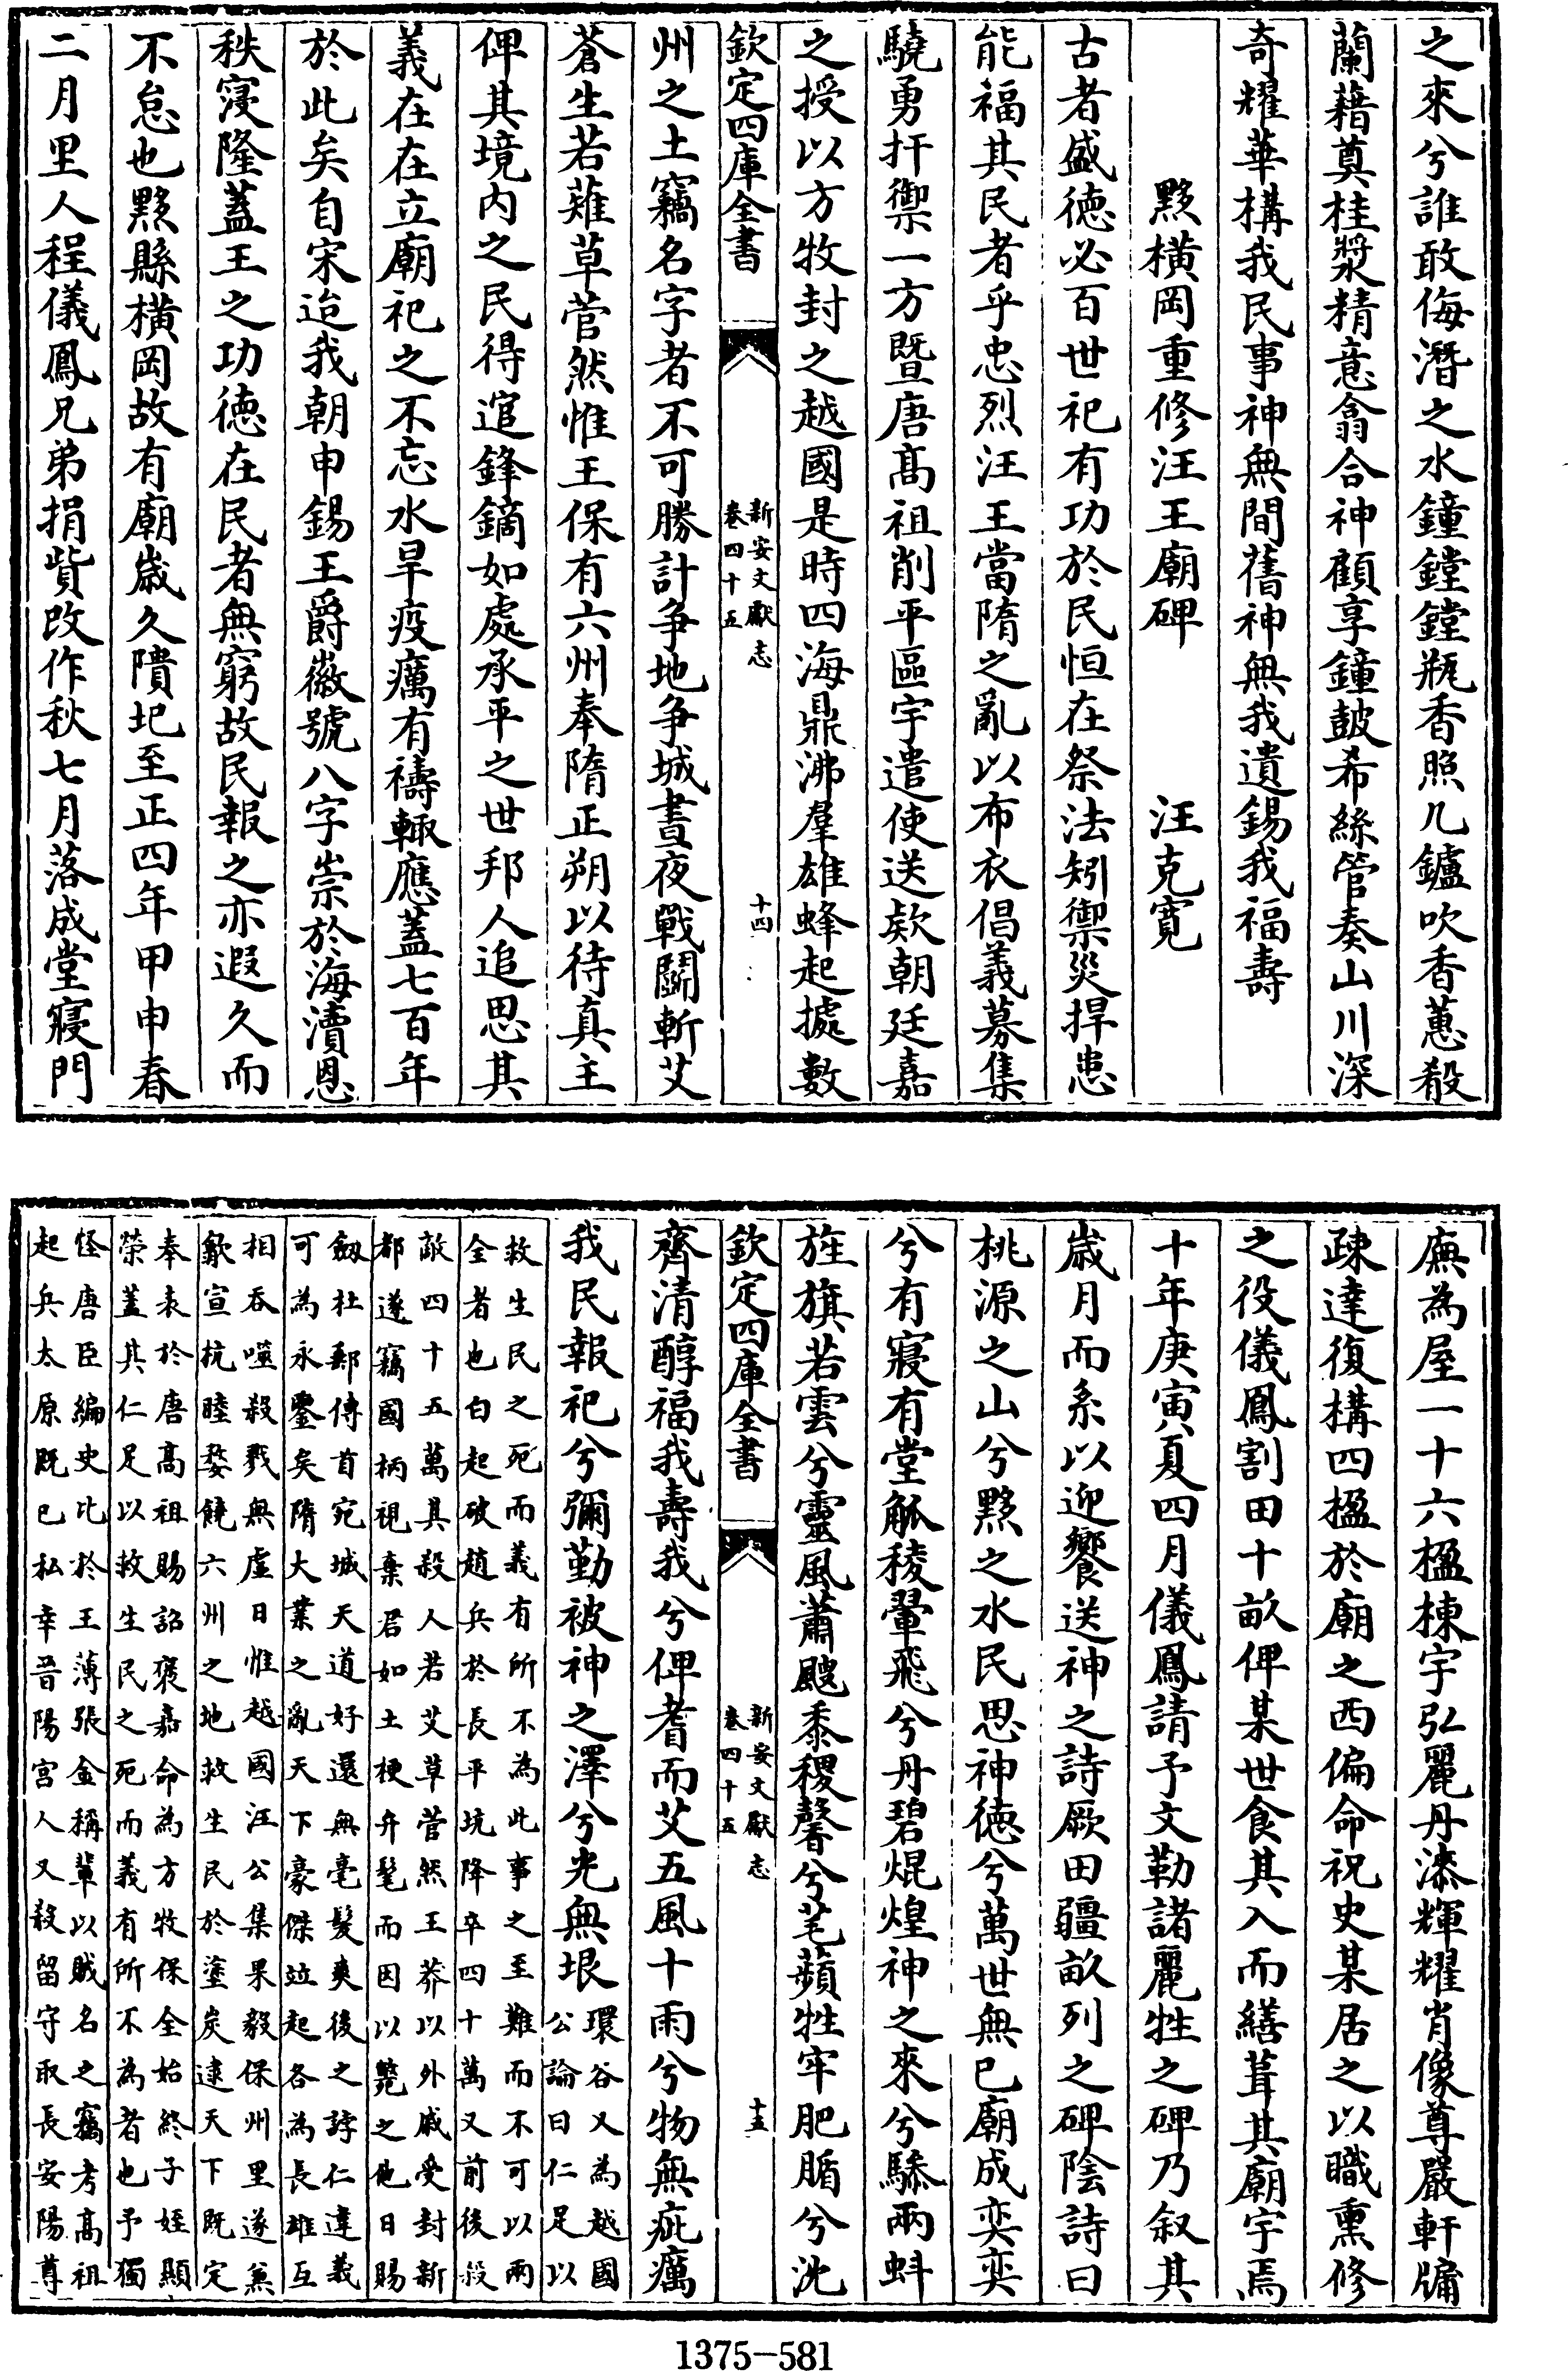 之來兮誰敢侮潛之水鐘鏜鏜瓶香照几鑪吹香蕙殽
蘭藉奠桂漿精意翕合神顧享鐘鼓希絲管奏山川深
奇耀華構我民事神神無間舊神無我遺錫我福壽
黟横岡重修汪王廟碑　汪克寛
古者盛徳必百世祀有功於民恒在祭法矧禦災捍患
能福其民者乎忠烈汪王當隋之亂以布衣倡義募集
驍勇扞禦一方暨唐髙祖削平區宇遣使送欵朝廷嘉
之授以方牧封之越國是時四海鼎沸羣雄蜂起據數
欽定四庫全書　新安文獻志卷四十五　十四
州之土竊名字者不可勝計争地争城晝夜戰鬭斬艾
蒼生若薙草菅然惟王保有六州奉隋正朔以待真主
俾其境内之民得逭鋒鏑如處承平之世邦人追思其
義在在立廟祀之不忘水旱疫癘有禱輒應蓋七百年
於此矣自宋迨我朝申錫王爵徽號八字崇於海瀆恩
秩寖隆蓋王之功徳在民者無窮故民報之亦遐久而
不怠也黟縣横岡故有廟歳久隤圮至正四年甲申春
二月里人程儀鳳兄弟捐貲改作秋七月落成堂寢門
廡為屋一十六楹棟宇弘麗丹漆輝耀肖像尊嚴軒牖
疎達復構四楹於廟之西偏命祝史某居之以職熏修
之役儀鳳割田十畝俾某世食其入而繕葺其廟宇焉
十年庚寅夏四月儀鳳請予文勒諸麗牲之碑乃叙其
歳月而系以迎饗送神之詩厥田疆畝列之碑陰詩曰
桃源之山兮黟之水民思神徳兮萬世無已廟成奕奕
兮有寢有堂觚稜翬飛兮丹碧焜煌神之來兮驂兩蚪
旌旗若雲兮靈風蕭颼黍稷馨兮芼蘋牲牢肥腯兮沈
欽定四庫全書　新安文獻志卷四十五　十五
齊清醇福我壽我兮俾耆而艾五風十雨兮物無疵癘
我民報祀兮彌勤被神之澤兮光無垠環谷又為越國公論曰仁足以
救生民之死而義有所不為此事之至難而不可以兩全者也白起破趙兵於長平坑降卒四十萬又前後殺
敵四十五萬其殺人若艾草菅然王莽以外戚受封新都遂竊國柄視棄君如土梗弁髦而因以斃之他日賜
劔杜郵傳首宛城天道好還無毫髮爽後之誖仁違義可為永鑒矣隋大業之亂天下豪傑竝起各為長雄互
相吞噬殺戮無虚日惟越國汪公集果毅保州里遂兼歙宣杭睦婺饒六州之地救生民於塗炭逮天下既定
奉表於唐高祖賜詔褒嘉命為方牧保全始終子姪顯榮蓋其仁足以救生民之死而義有所不為者也予獨
怪唐臣編史比於王薄張金稱輩以賊名之竊考高祖起兵太原既已私幸晉陽宫人又殺留守取長安陽尊
1375-581